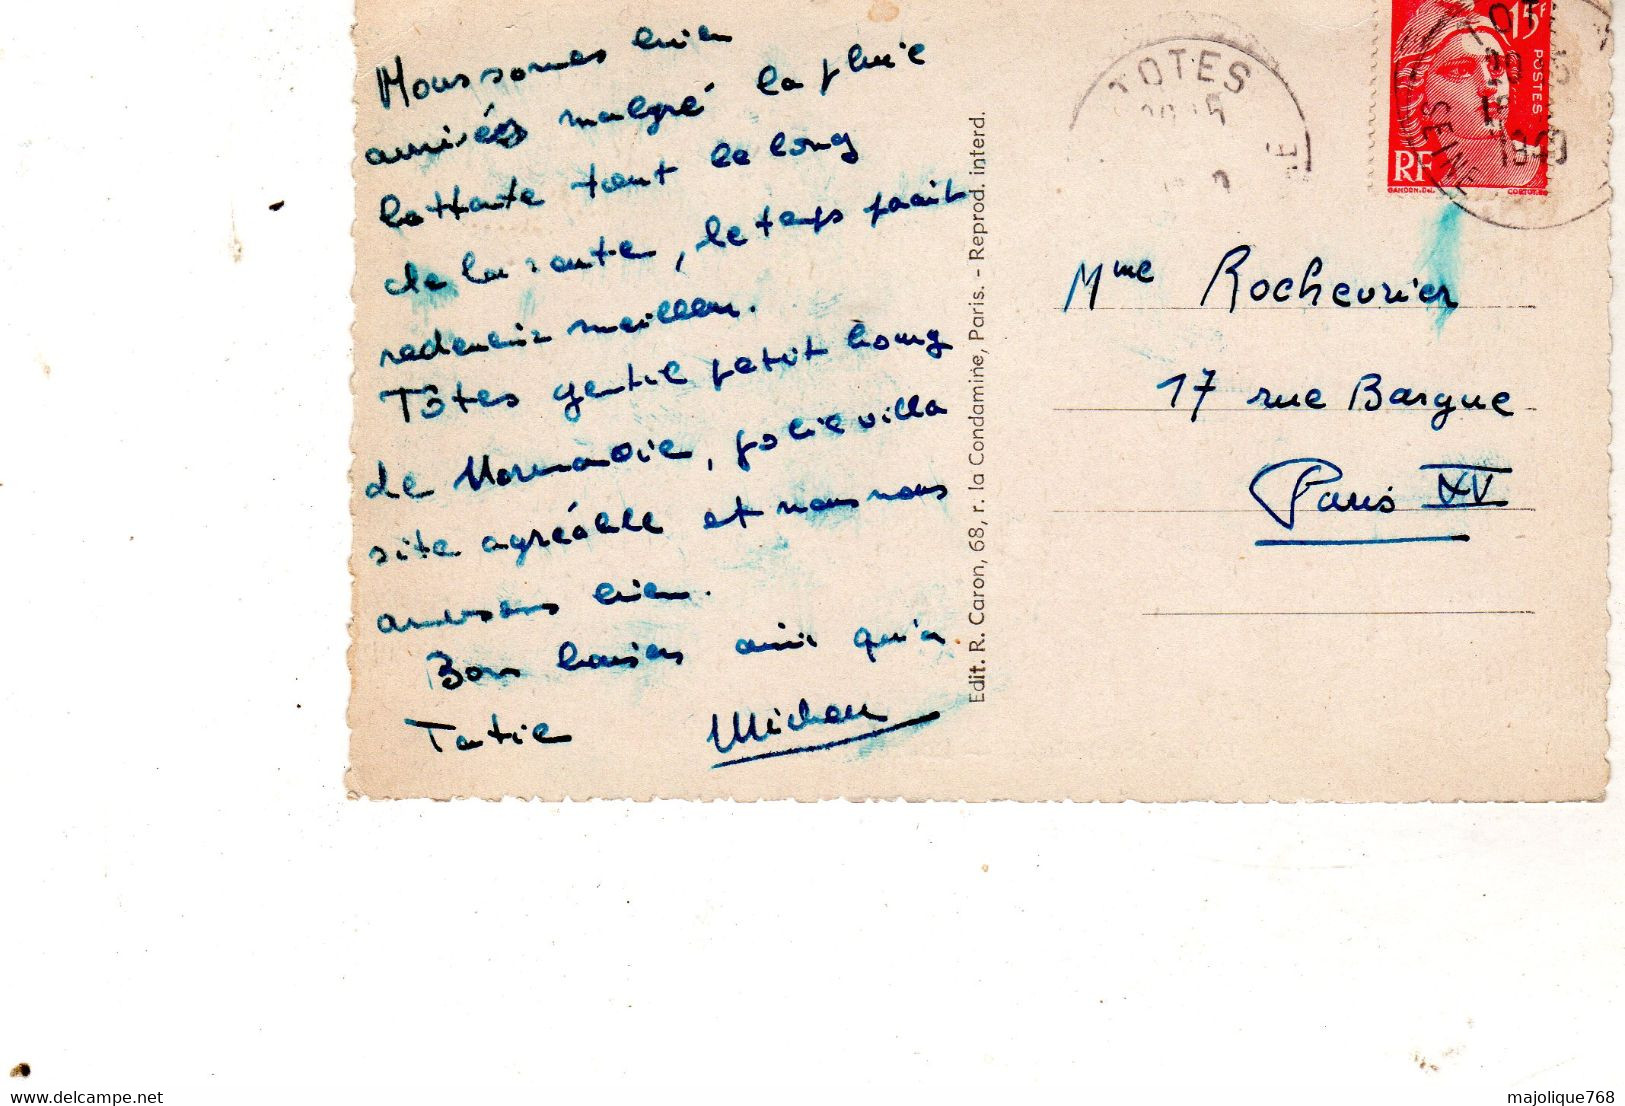 Nous sommes bien
arrivés malgré la pluie
battante tout le long
de la route, le temps paait
redevenir meilleur.
Tôtes gentil petit bourg
de Normandie, jolie villa
site agréable et nous nous
amusons bien.
Bon baisers ainsi qu'a
Tatie Michou
Edit. R. Caron, 68, r. la Condamine, Paris. - Reprod. interd.
TOTES
15F
POSTES
RF
GANDON.DEL.
SEINE
1949
Mme Rochevrier
17 rue Bargue
Paris XV
www.delcampe.net
majolique768